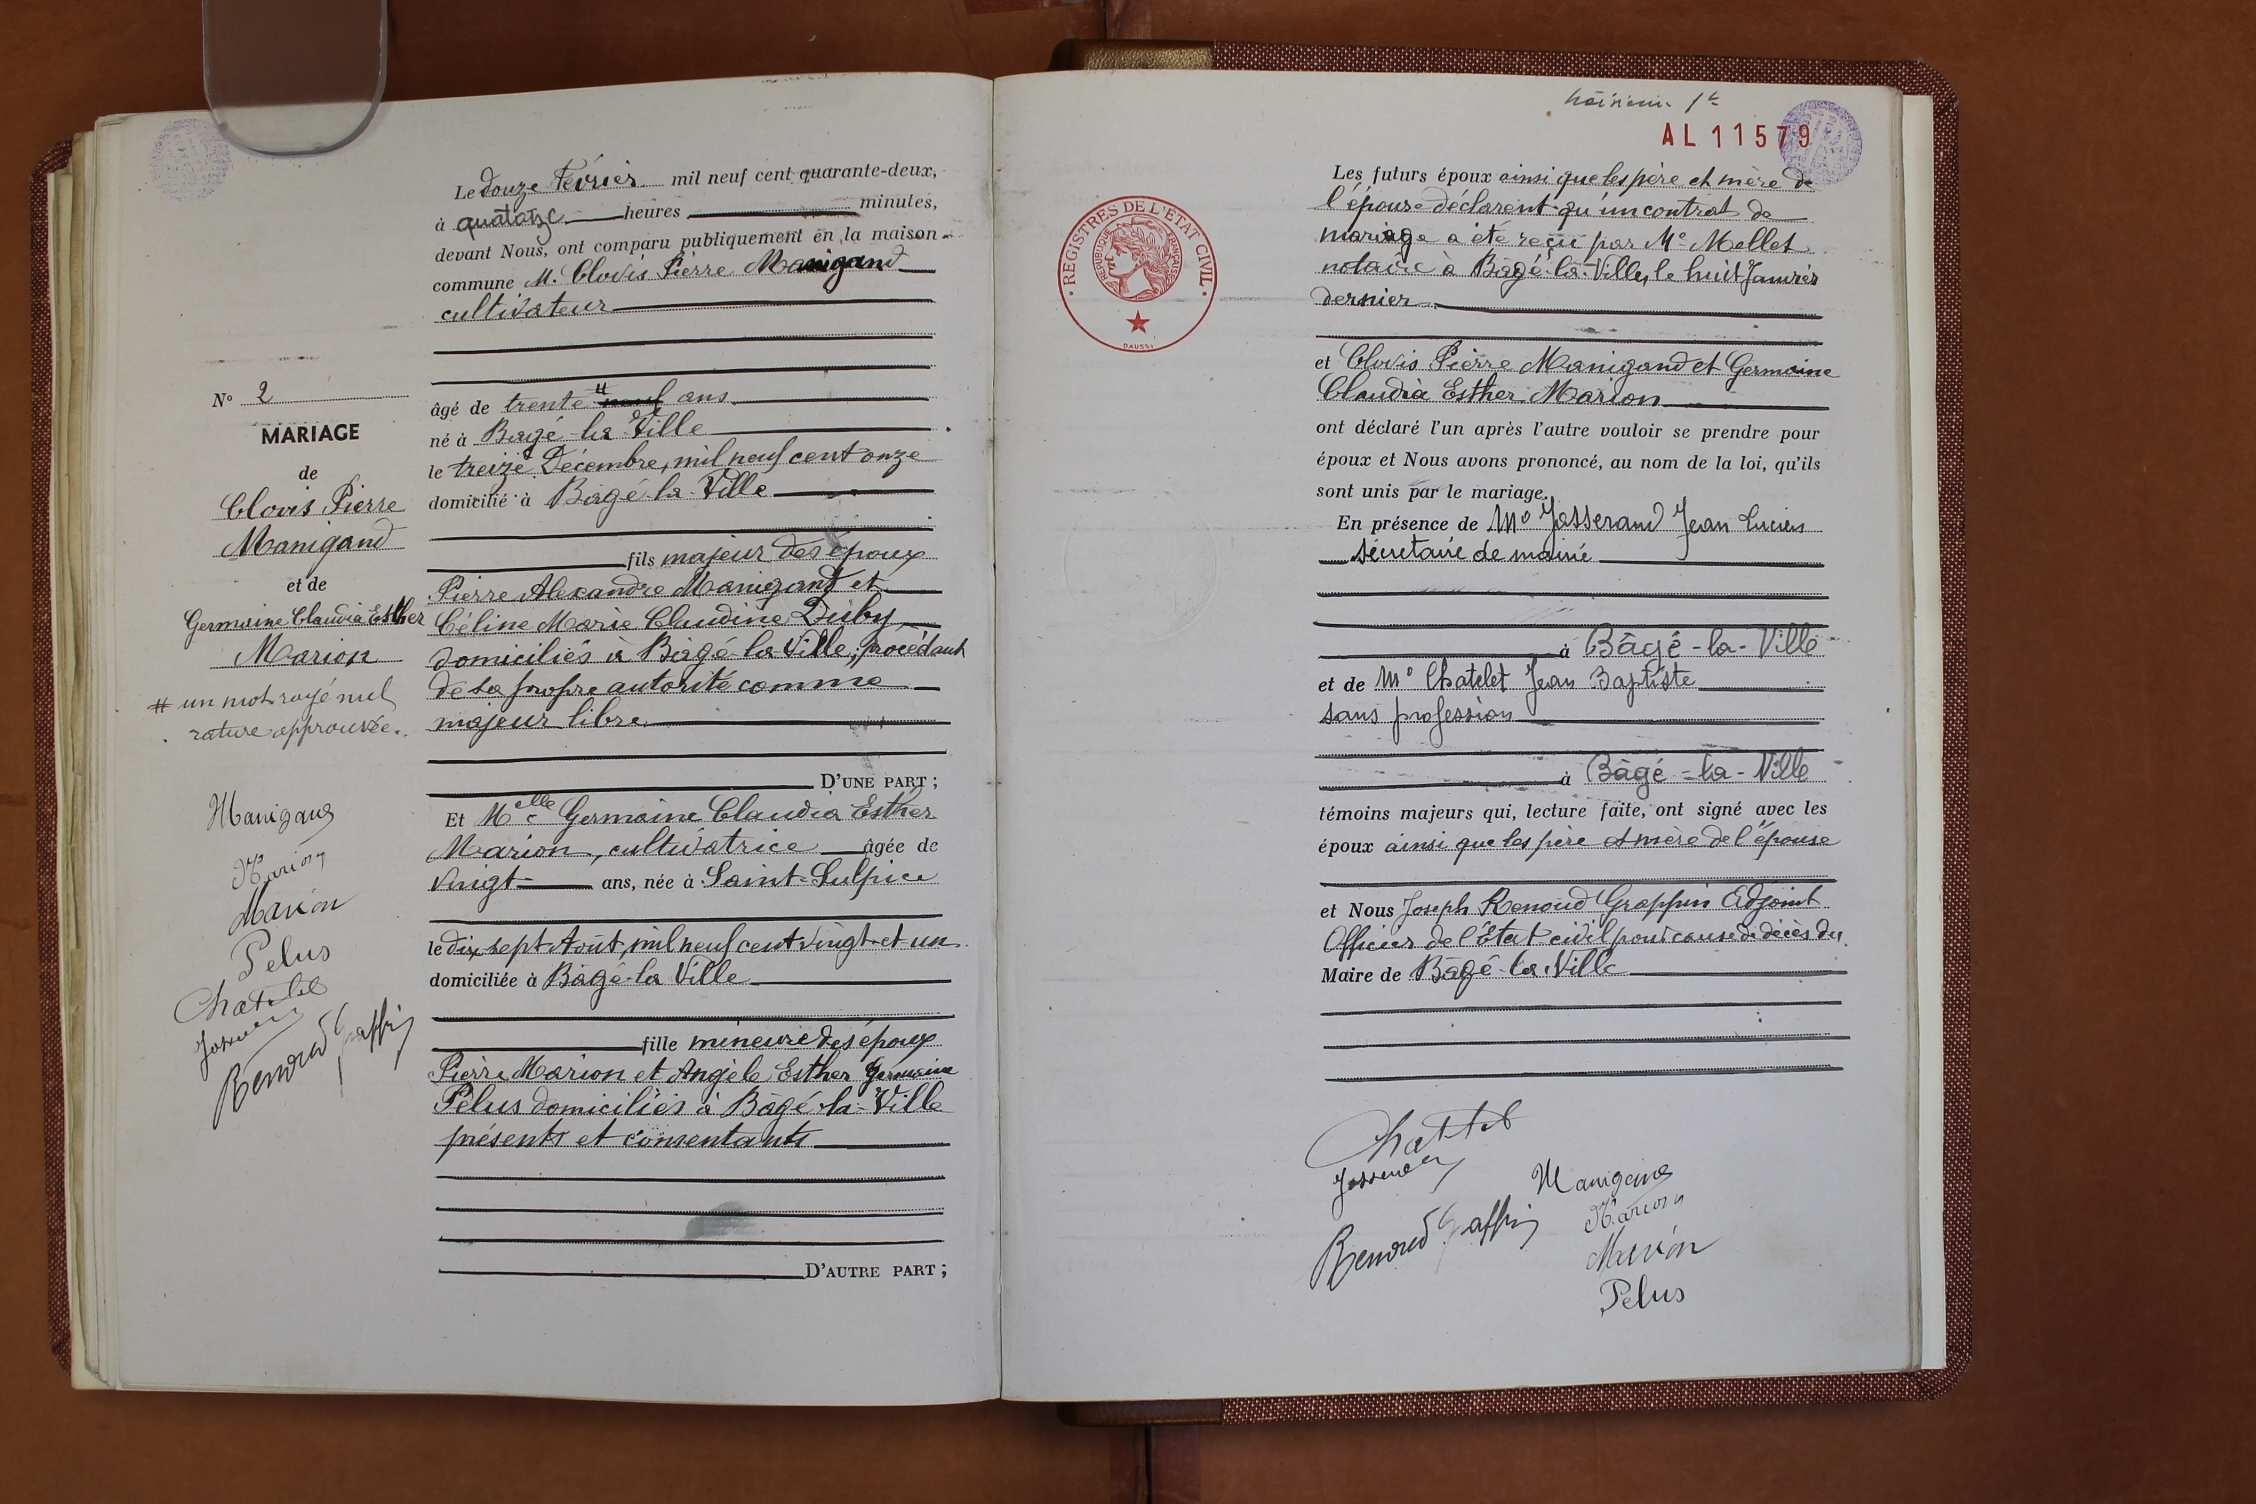 Le douze Février mil neuf cent quarante-deux,
à quatorze heures minutes,
devant Nous, ont comparu publiquement en la maison
commune M. Clovis Pierre Manigand
cultivateur
âgé de trente # neuf ans
né à Bagé-la-Ville
le treize Décembre, mil neuf cent onze
domicilié à Bâgé-la-Ville
fils majeur des époux
Pierre Alexandre Manigand et
Céline Marie Claudine Duby
domiciliés à Bâgé-la-Ville; procédant
de sa propre autorité comme
majeur libre
D'UNE PART ;
Et Melle Germaine Claudia Esther
Marion, cultivatrice âgée de
vingt ans, née à Saint-Sulpice
le dix sept Août, mil neuf cent vingt-et-un
domiciliée à Bâgé-la-Ville
fille mineure des époux
Pierre Marion et Angèle Esther Germaine
Pelus domiciliés à Bâgé-la-Ville
présents et consentants
D'AUTRE PART ;
N° 2
MARIAGE
de
Clovis Pierre
Manigand
et de
Germaine Claudia Esther
Marion
# un mot rayé nul
rature approuvée.
Manigand
Marion
Marion
Pelus
Chatelet
Josserand
Renoud Grappin
AL 11579
REGISTRES DE L'ETAT CIVIL
REPUBLIQUE FRANÇAISE
DAUSSY
Les futurs époux ainsi que les père et mère de
l'épouse déclarent qu'un contrat de
mariage a été reçu par Me Mellet
notaire à Bâgé-la-Ville, le huit Janvier
dernier
et Clovis Pierre Manigand et Germaine
Claudia Esther Marion
ont déclaré l'un après l'autre vouloir se prendre pour
époux et Nous avons prononcé, au nom de la loi, qu'ils
sont unis par le mariage.
En présence de Mo Josserand Jean Lucien
secrétaire de mairie
à Bâgé-la-Ville
et de Mo Chatelet Jean Baptiste
sans profession
à Bâgé-la-Ville
témoins majeurs qui, lecture faite, ont signé avec les
époux ainsi que les père et mère de l'épouse
et Nous Joseph Renoud Grappin Adjoint
Officier de l'Etat civil pour cause de décès du
Maire de Bâgé-la-Ville
Chatelet
Josserand
Renoud Grappin
Manigand
Marion
Marion
Pelus